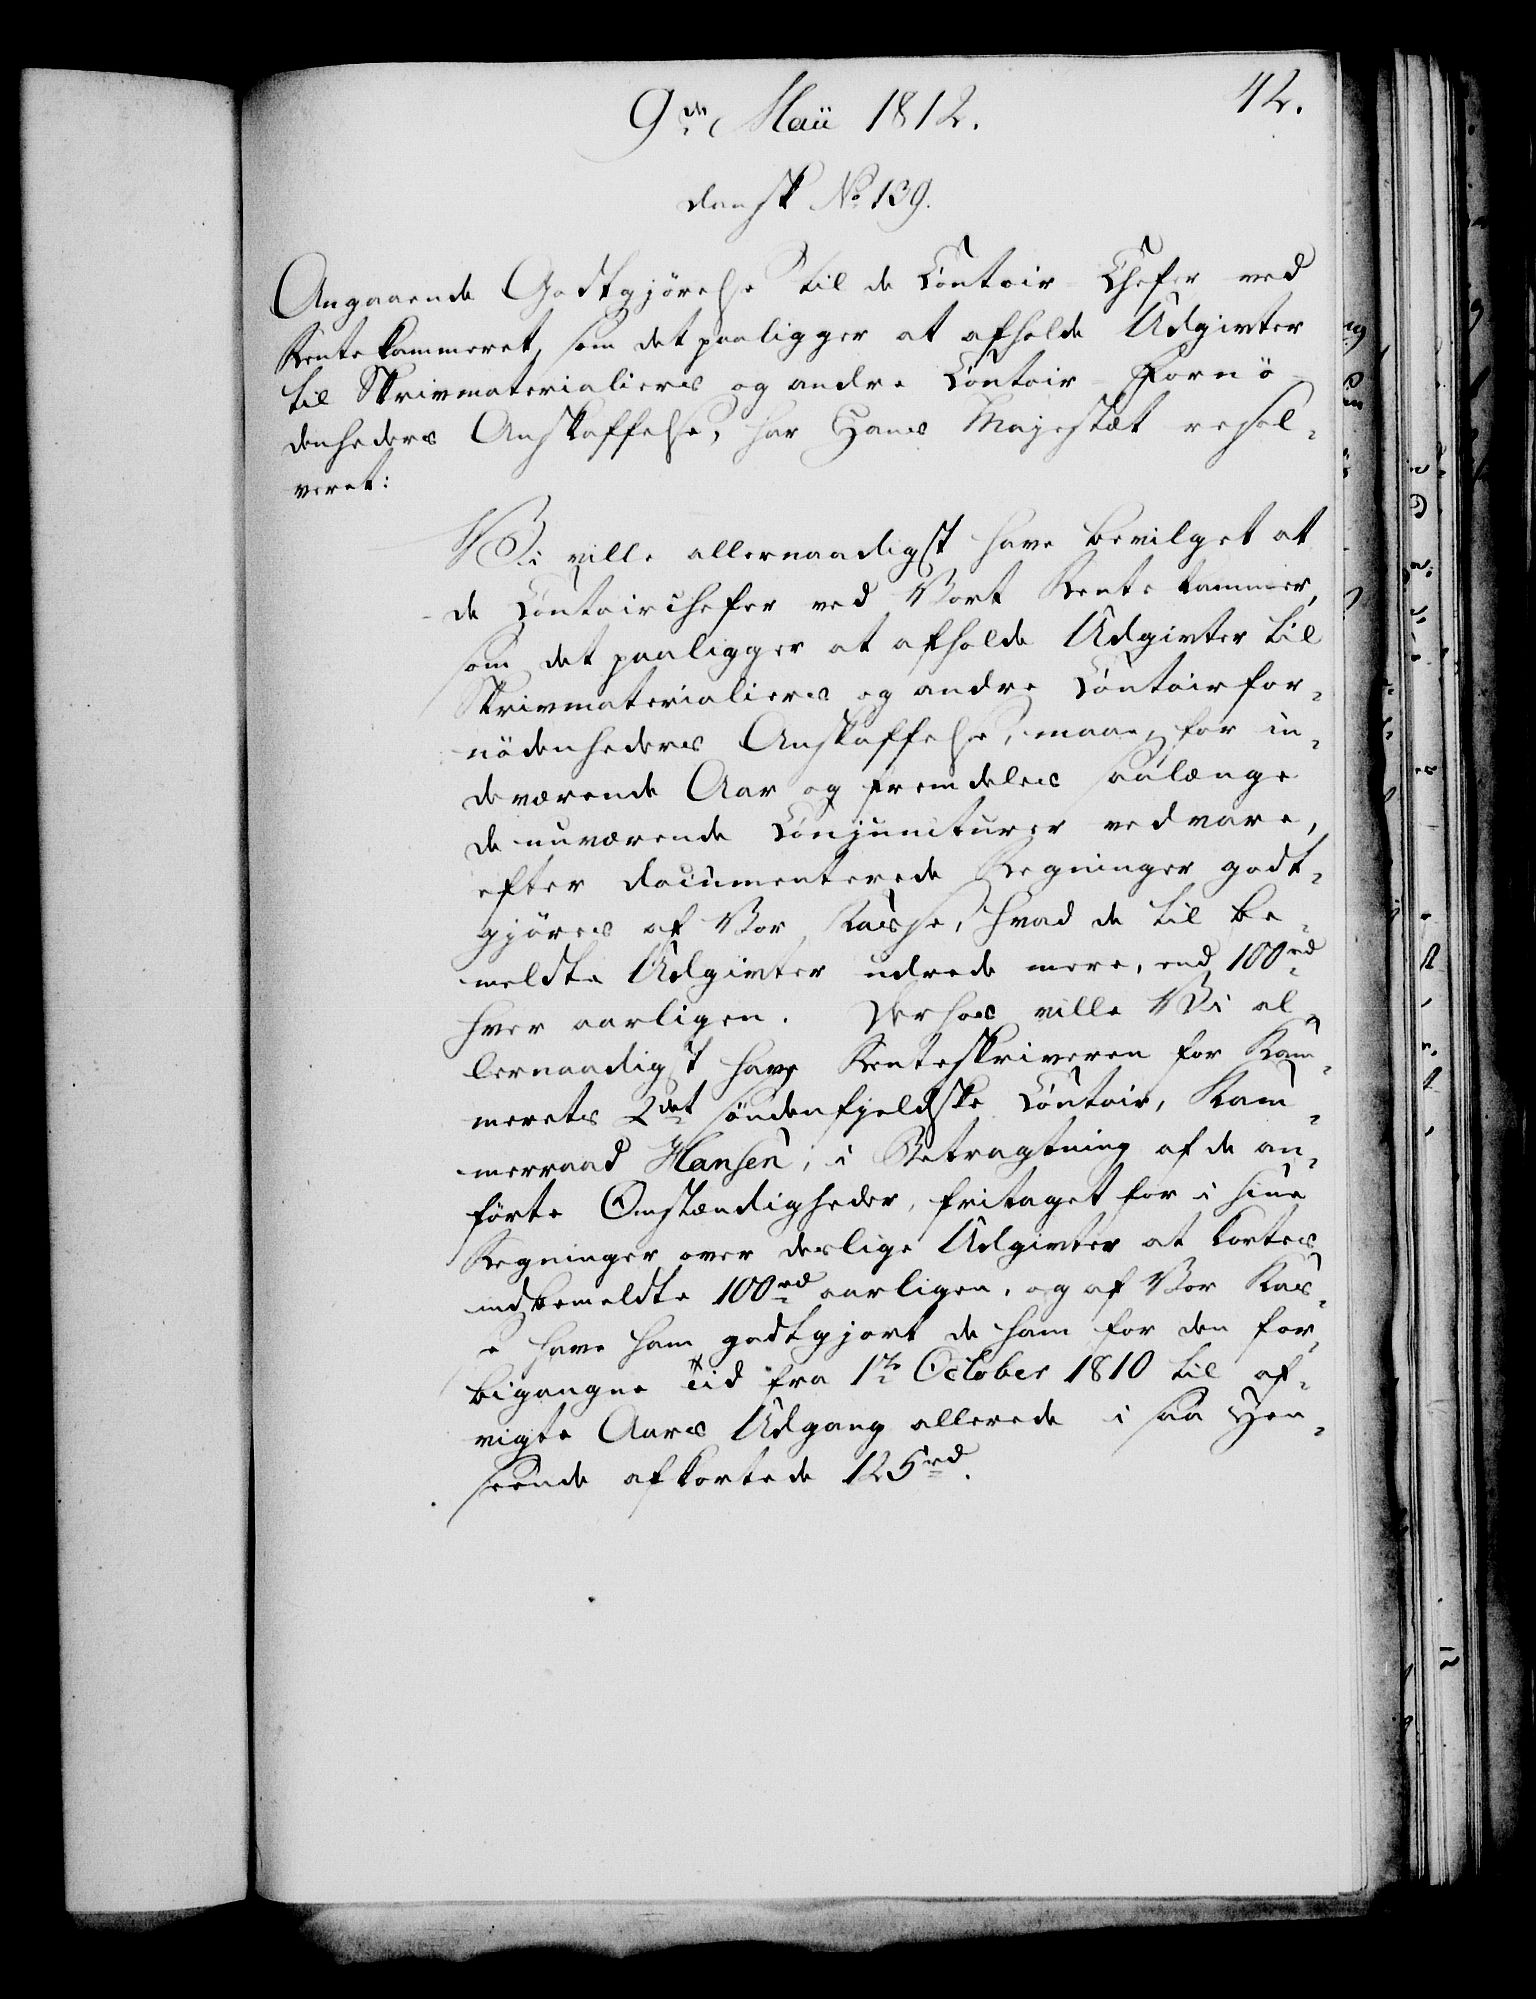 9de Maii 1812.
42.
dansk No 139.
Angaaende Godtgjörelse til de Contoir-Chefer ved
Rentekammeret, som det paaligger at afholde Udgivter
til Skrivmaterialiers og andre Contoir-Fornö-
denheders Anskaffelse, har Hans Majestæt resol-
veret:
Vi ville allernaadigst have bevilget at
de Contoirchefer ved Vort Rentekammer,
som det paaligger at afholde Udgivter til
Skrivmaterialiers og andre Contoirfor-
nödenheders Anskaffelse, maae, for in-
deværende Aar og fremdeles saalænge
de nuværende Conjuncturer vedvare,
efter documenterede Regninger godt-
gjöres af Vor Kasse, hvad de til be-
meldte Udgivter udrede mere, end 100rd
hver aarligen. Derhos ville Vi al-
lernaadigst have Renteskriveren for Kam-
merets 2det söndenfjeldske Contoir, Kam-
merraad Hansen, i Betragtning af de an-
förte Omstændigheder, fritaget for i sine
Regninger over deslige Udgivter at kortes
indbemeldte 100rd aarligen, og af Vor Kas-
se have ham godtgjort de ham for den for-
bigangne Tid fra 1te October 1810 til af-
vigte Aars Udgang allerede i saa Hen-
seende afkortede 125rd.